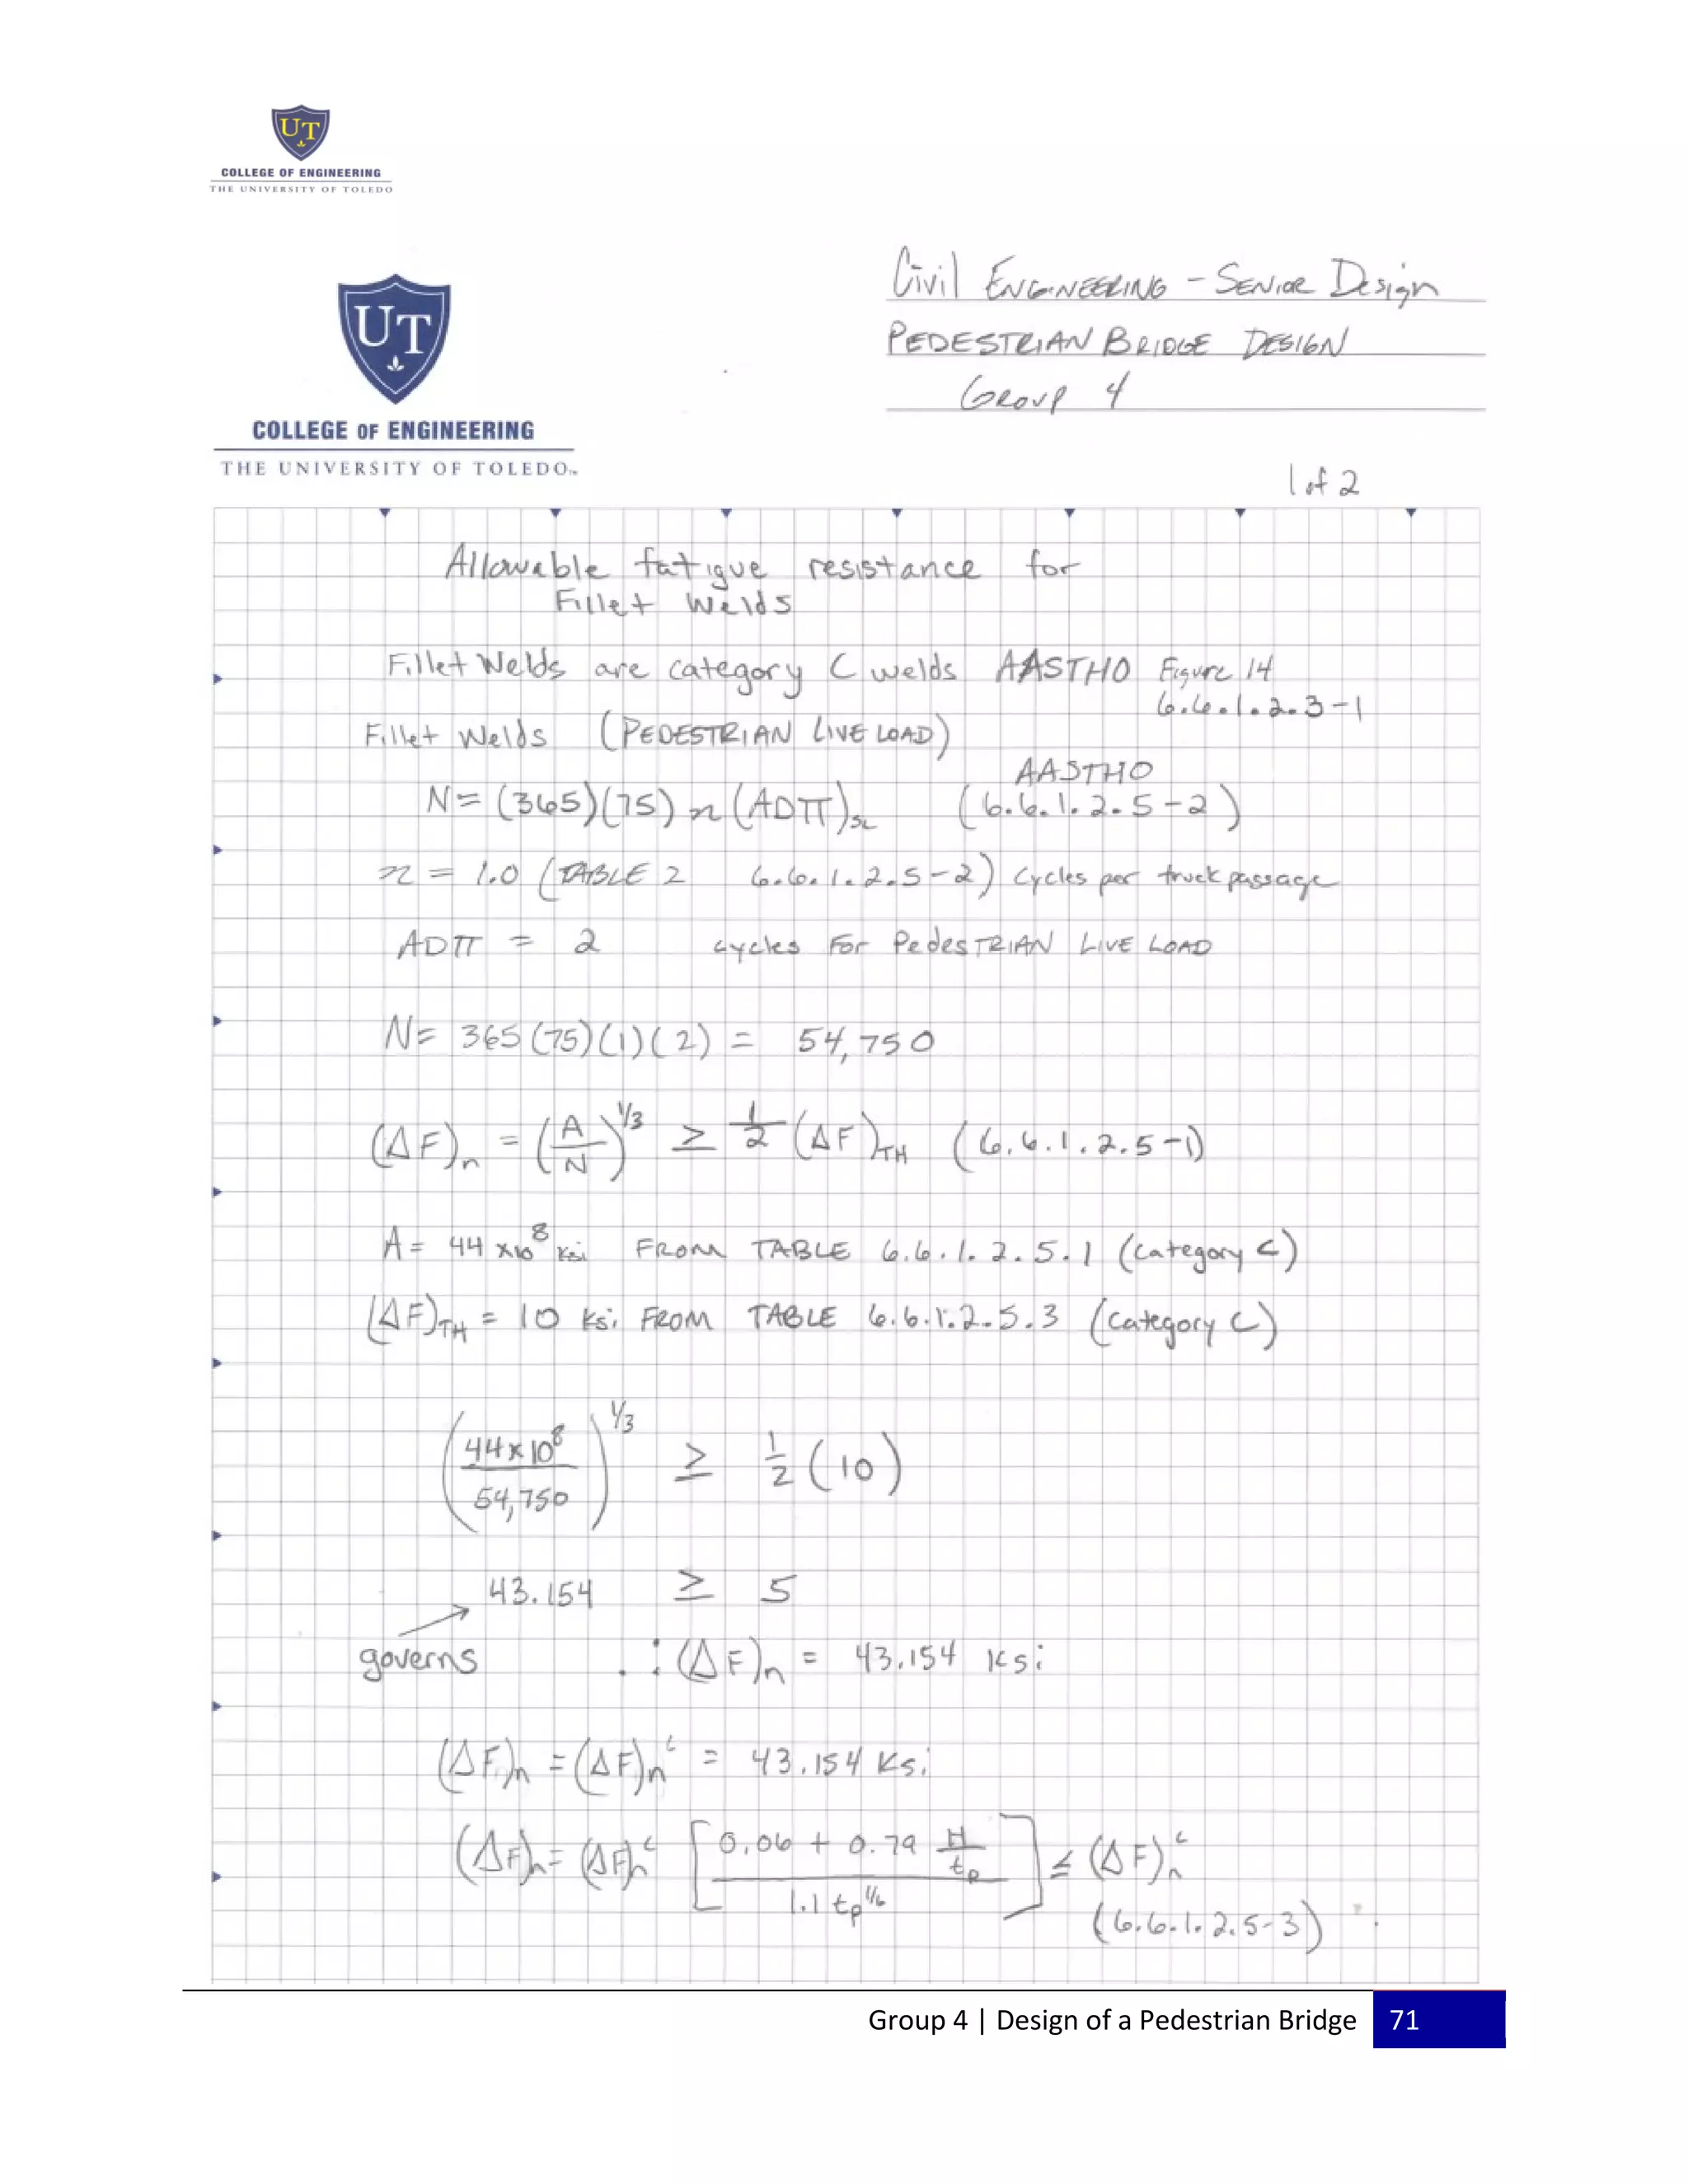 UT
COLLEGE OF ENGINEERING
THE UNIVERSITY OF TOLEDO
Civil ENGINEERING - SENIOR Design
PEDESTRIAN BRIDGE DESIGN
GROUP 4
UT
COLLEGE OF ENGINEERING
THE UNIVERSITY OF TOLEDO
1 of 2
Allowable fatigue resistance for
Fillet Welds
Fillet Welds are category C welds AASTHO Figure 14
6.6.1.2.3-1
Fillet Welds (PEDESTRIAN LIVE LOAD)
AASTHO
N= (365)(75) n (ADTT)SL (6.6.1.2.5-2)
n = 1.0 (TABLE 2 6.6.1.2.5-2) Cycles per truck passage
ADTT = 2 cycles For PedesTRIAN LIVE LOAD
N= 365(75)(1)(2) = 54,750
(ΔF)n = (A/N)^1/3 ≥ 1/2 (ΔF)TH (6.6.1.2.5-1)
A= 44 x10^8 Ksi FROM TABLE 6.6.1.2.5.1 (category C)
(ΔF)TH = 10 Ksi FROM TABLE 6.6.1.2.5.3 (category C)
(44x10^8/54,750)^1/3 ≥ 1/2 (10)
43.154 ≥ 5
governs ∴ (ΔF)n = 43.154 Ksi
(ΔF)n = (ΔF)n^c = 43.154 Ksi
(ΔF)n = (ΔF)n^c [0.06 + 0.79 H/tp / 1.1 tp^1/6] ≤ (ΔF)n^c
(6.6.1.2.5-3)
Group 4 | Design of a Pedestrian Bridge 71